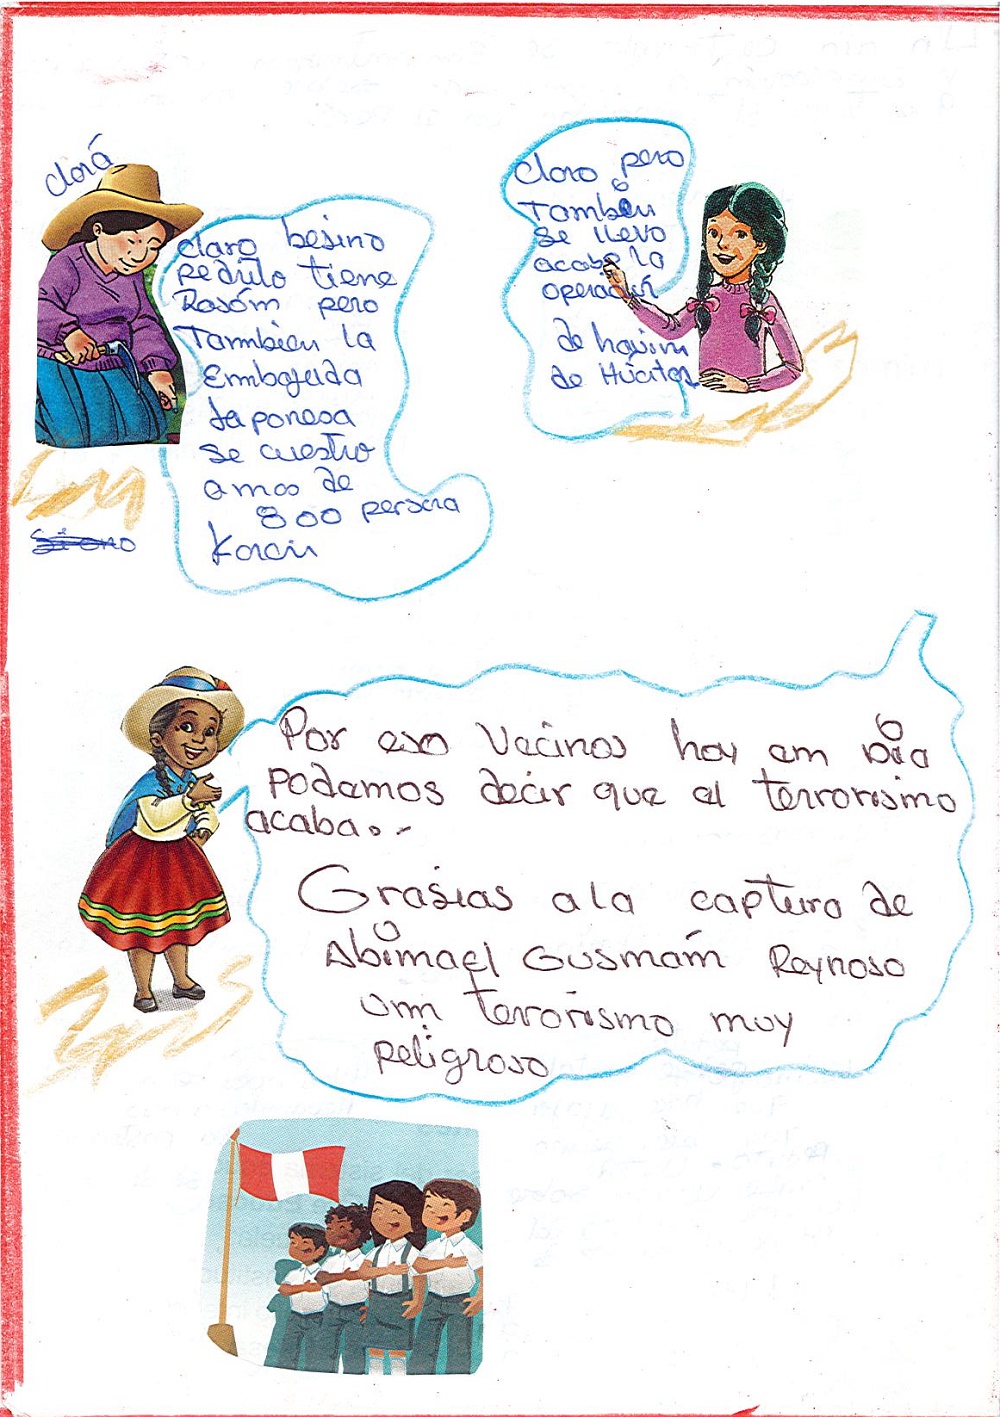 clorá
claro besino
pedulo tiene
Rasóm pero
Tambíen la
Embajada
Japonesa
se cuestro
a mas de
800 persona
Claro pero
Tambíen
se llevo
acabo la
operación
de havim
de Húantar
Por eso Vecinos hoy em Día
Podemos decir que el terrorismo
acaba..-
Grasias a la captura de
Abimael Gusmám Reynoso
unn terrorismo muy
peligroso